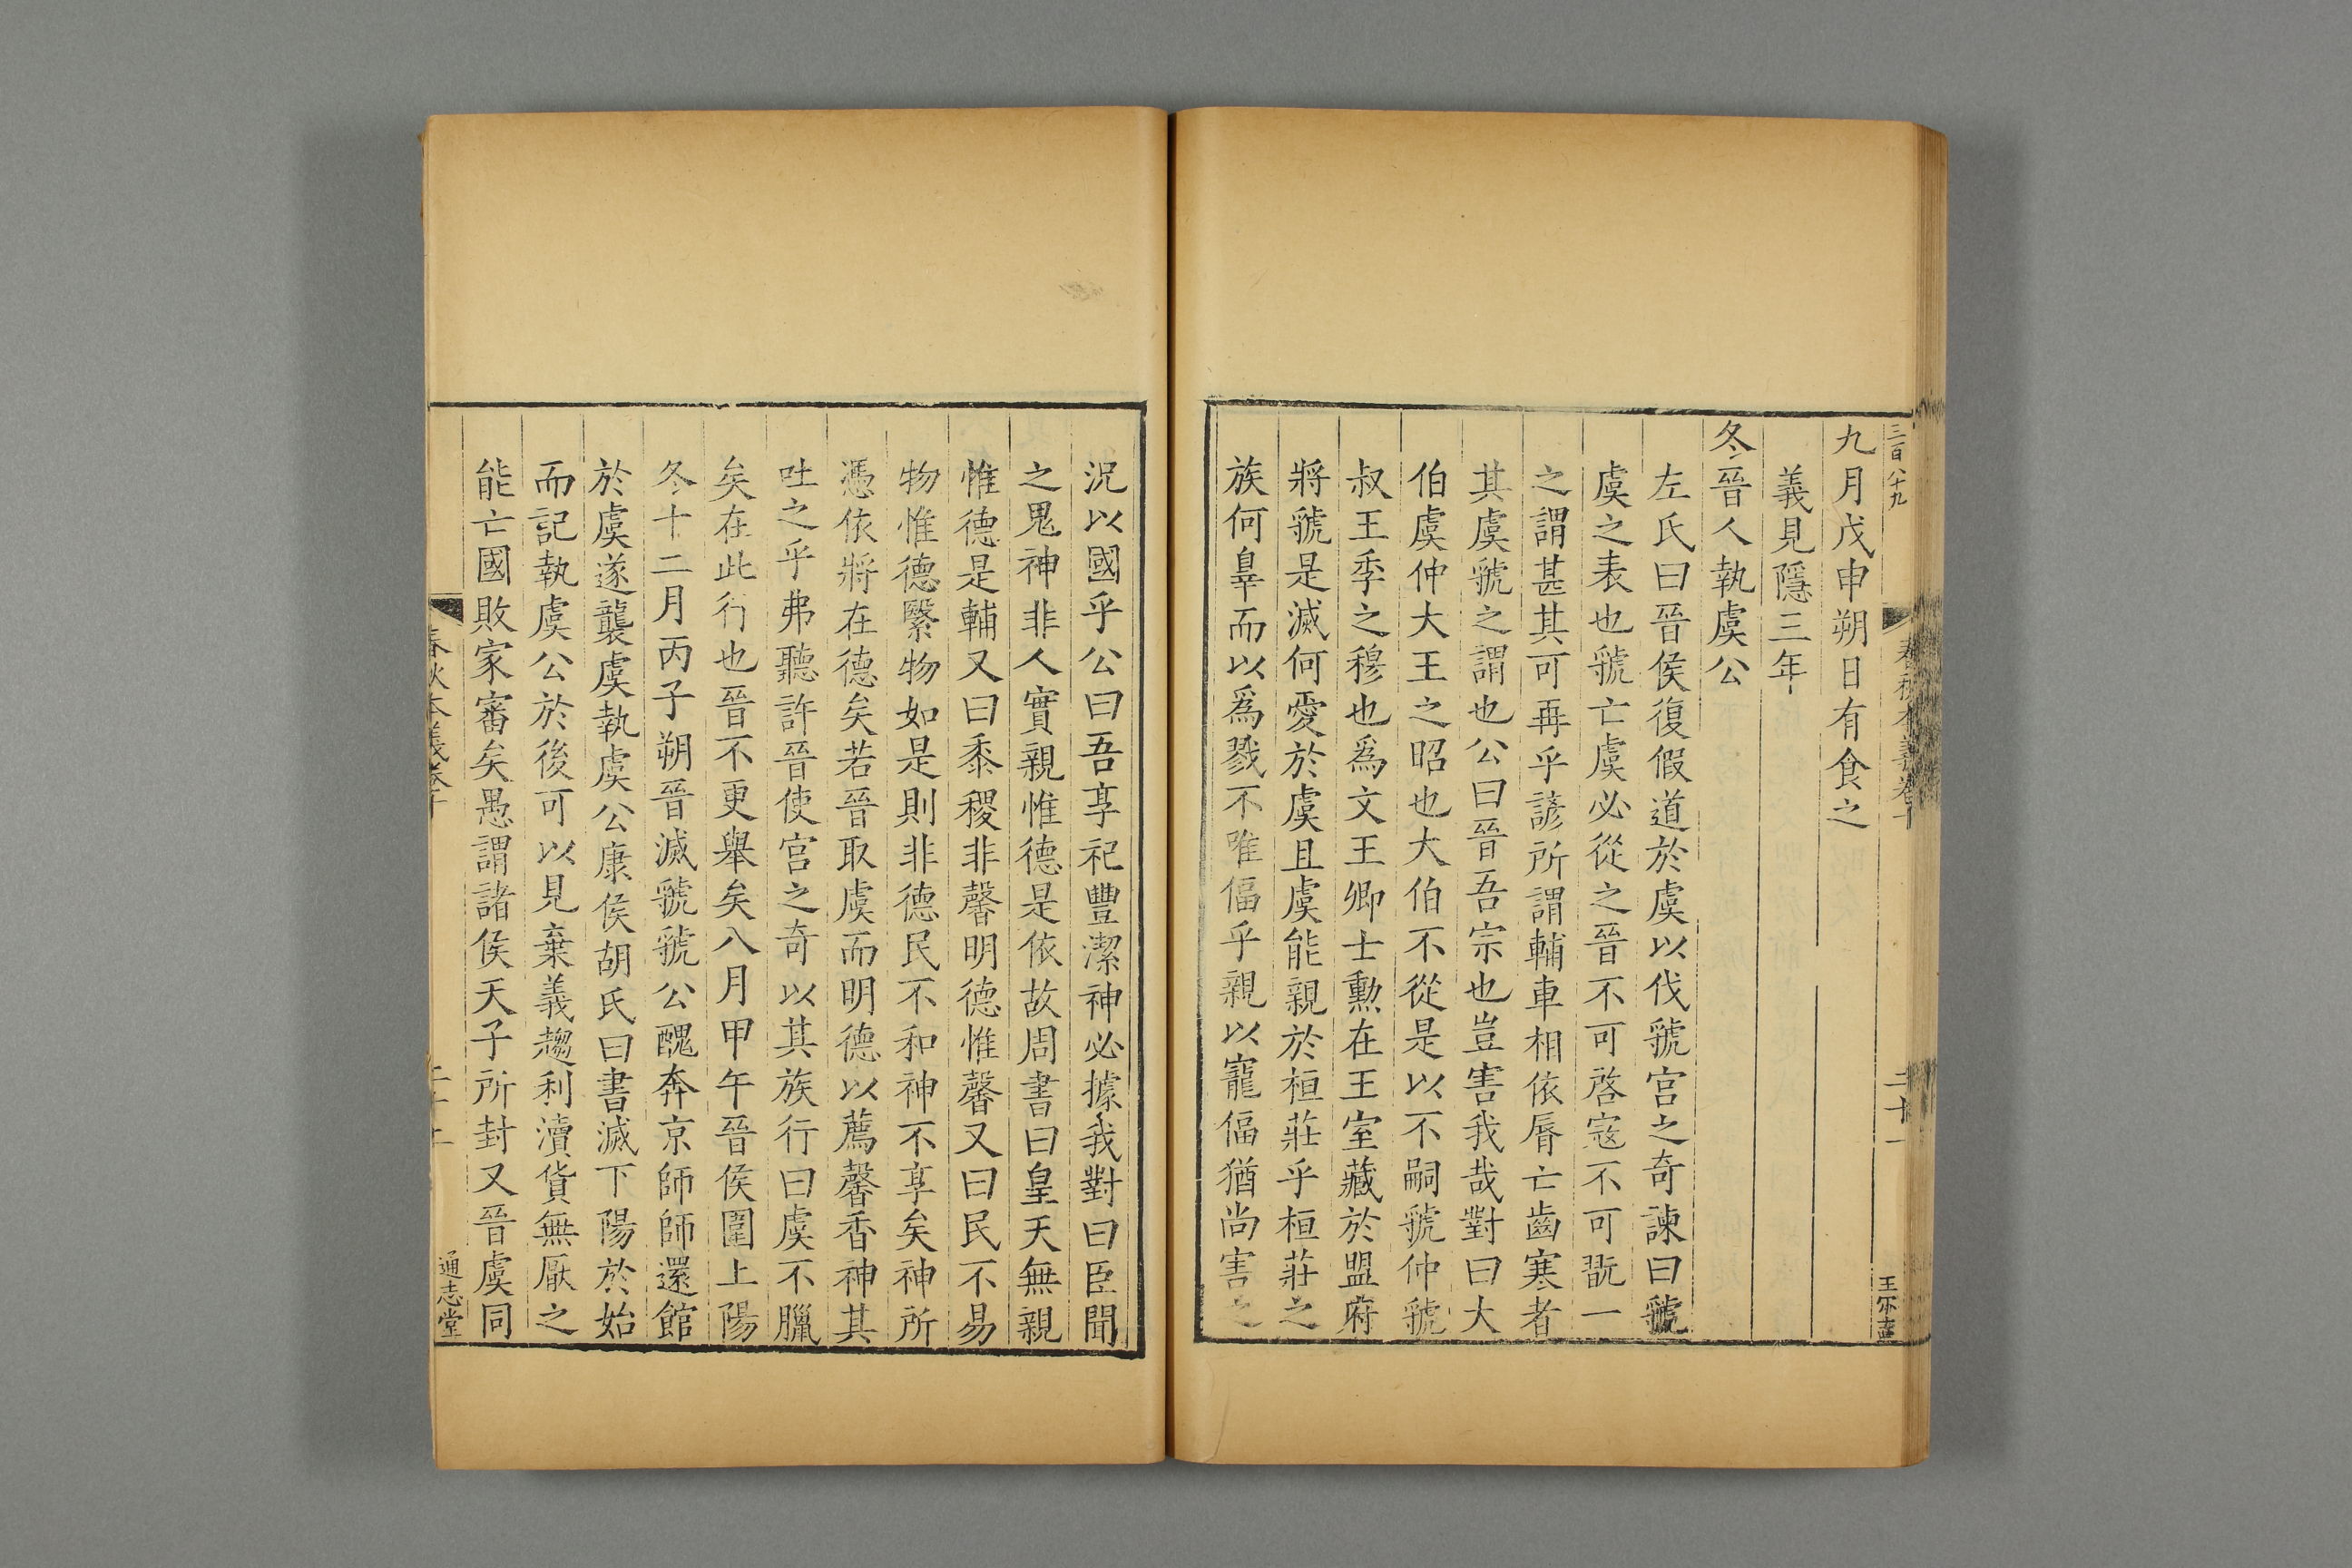 三百八十九
春秋本義卷十
二十一
九月戊申朔日有食之
義見隱三年
冬晉人執虞公
左氏曰晉侯復假道於虞以伐虢宮之奇諫曰虢
虞之表也虢亡虞必從之晉不可啓寇不可翫一
之謂甚其可再乎諺所謂輔車相依脣亡齒寒者
其虞虢之謂也公曰晉吾宗也豈害我哉對曰大
伯虞仲大王之昭也大伯不從是以不嗣虢仲虢
叔王季之穆也爲文王卿士勲在王室藏於盟府
將虢是滅何愛於虞且虞能親於桓莊乎桓莊之
族何辠而以爲戮不唯偪乎親以寵偪猶尚害之
況以國乎公曰吾享祀豐潔神必據我對曰臣聞
之鬼神非人實親惟德是依故周書曰皇天無親
惟德是輔又曰黍稷非馨明德惟馨又曰民不易
物惟德繄物如是則非德民不和神不享矣神所
憑依將在德矣若晉取虞而明德以薦馨香神其
吐之乎弗聽許晉使宮之奇以其族行曰虞不臘
矣在此行也晉不更舉矣八月甲午晉侯圍上陽
冬十二月丙子朔晉滅虢虢公醜奔京師師還館
於虞遂襲虞執虞公康侯胡氏曰書滅下陽於始
而記執虞公於後可以見棄義趨利瀆貨無厭之
能亡國敗家審矣愚謂諸侯天子所封又晉虞同
春秋本義卷十
通志堂